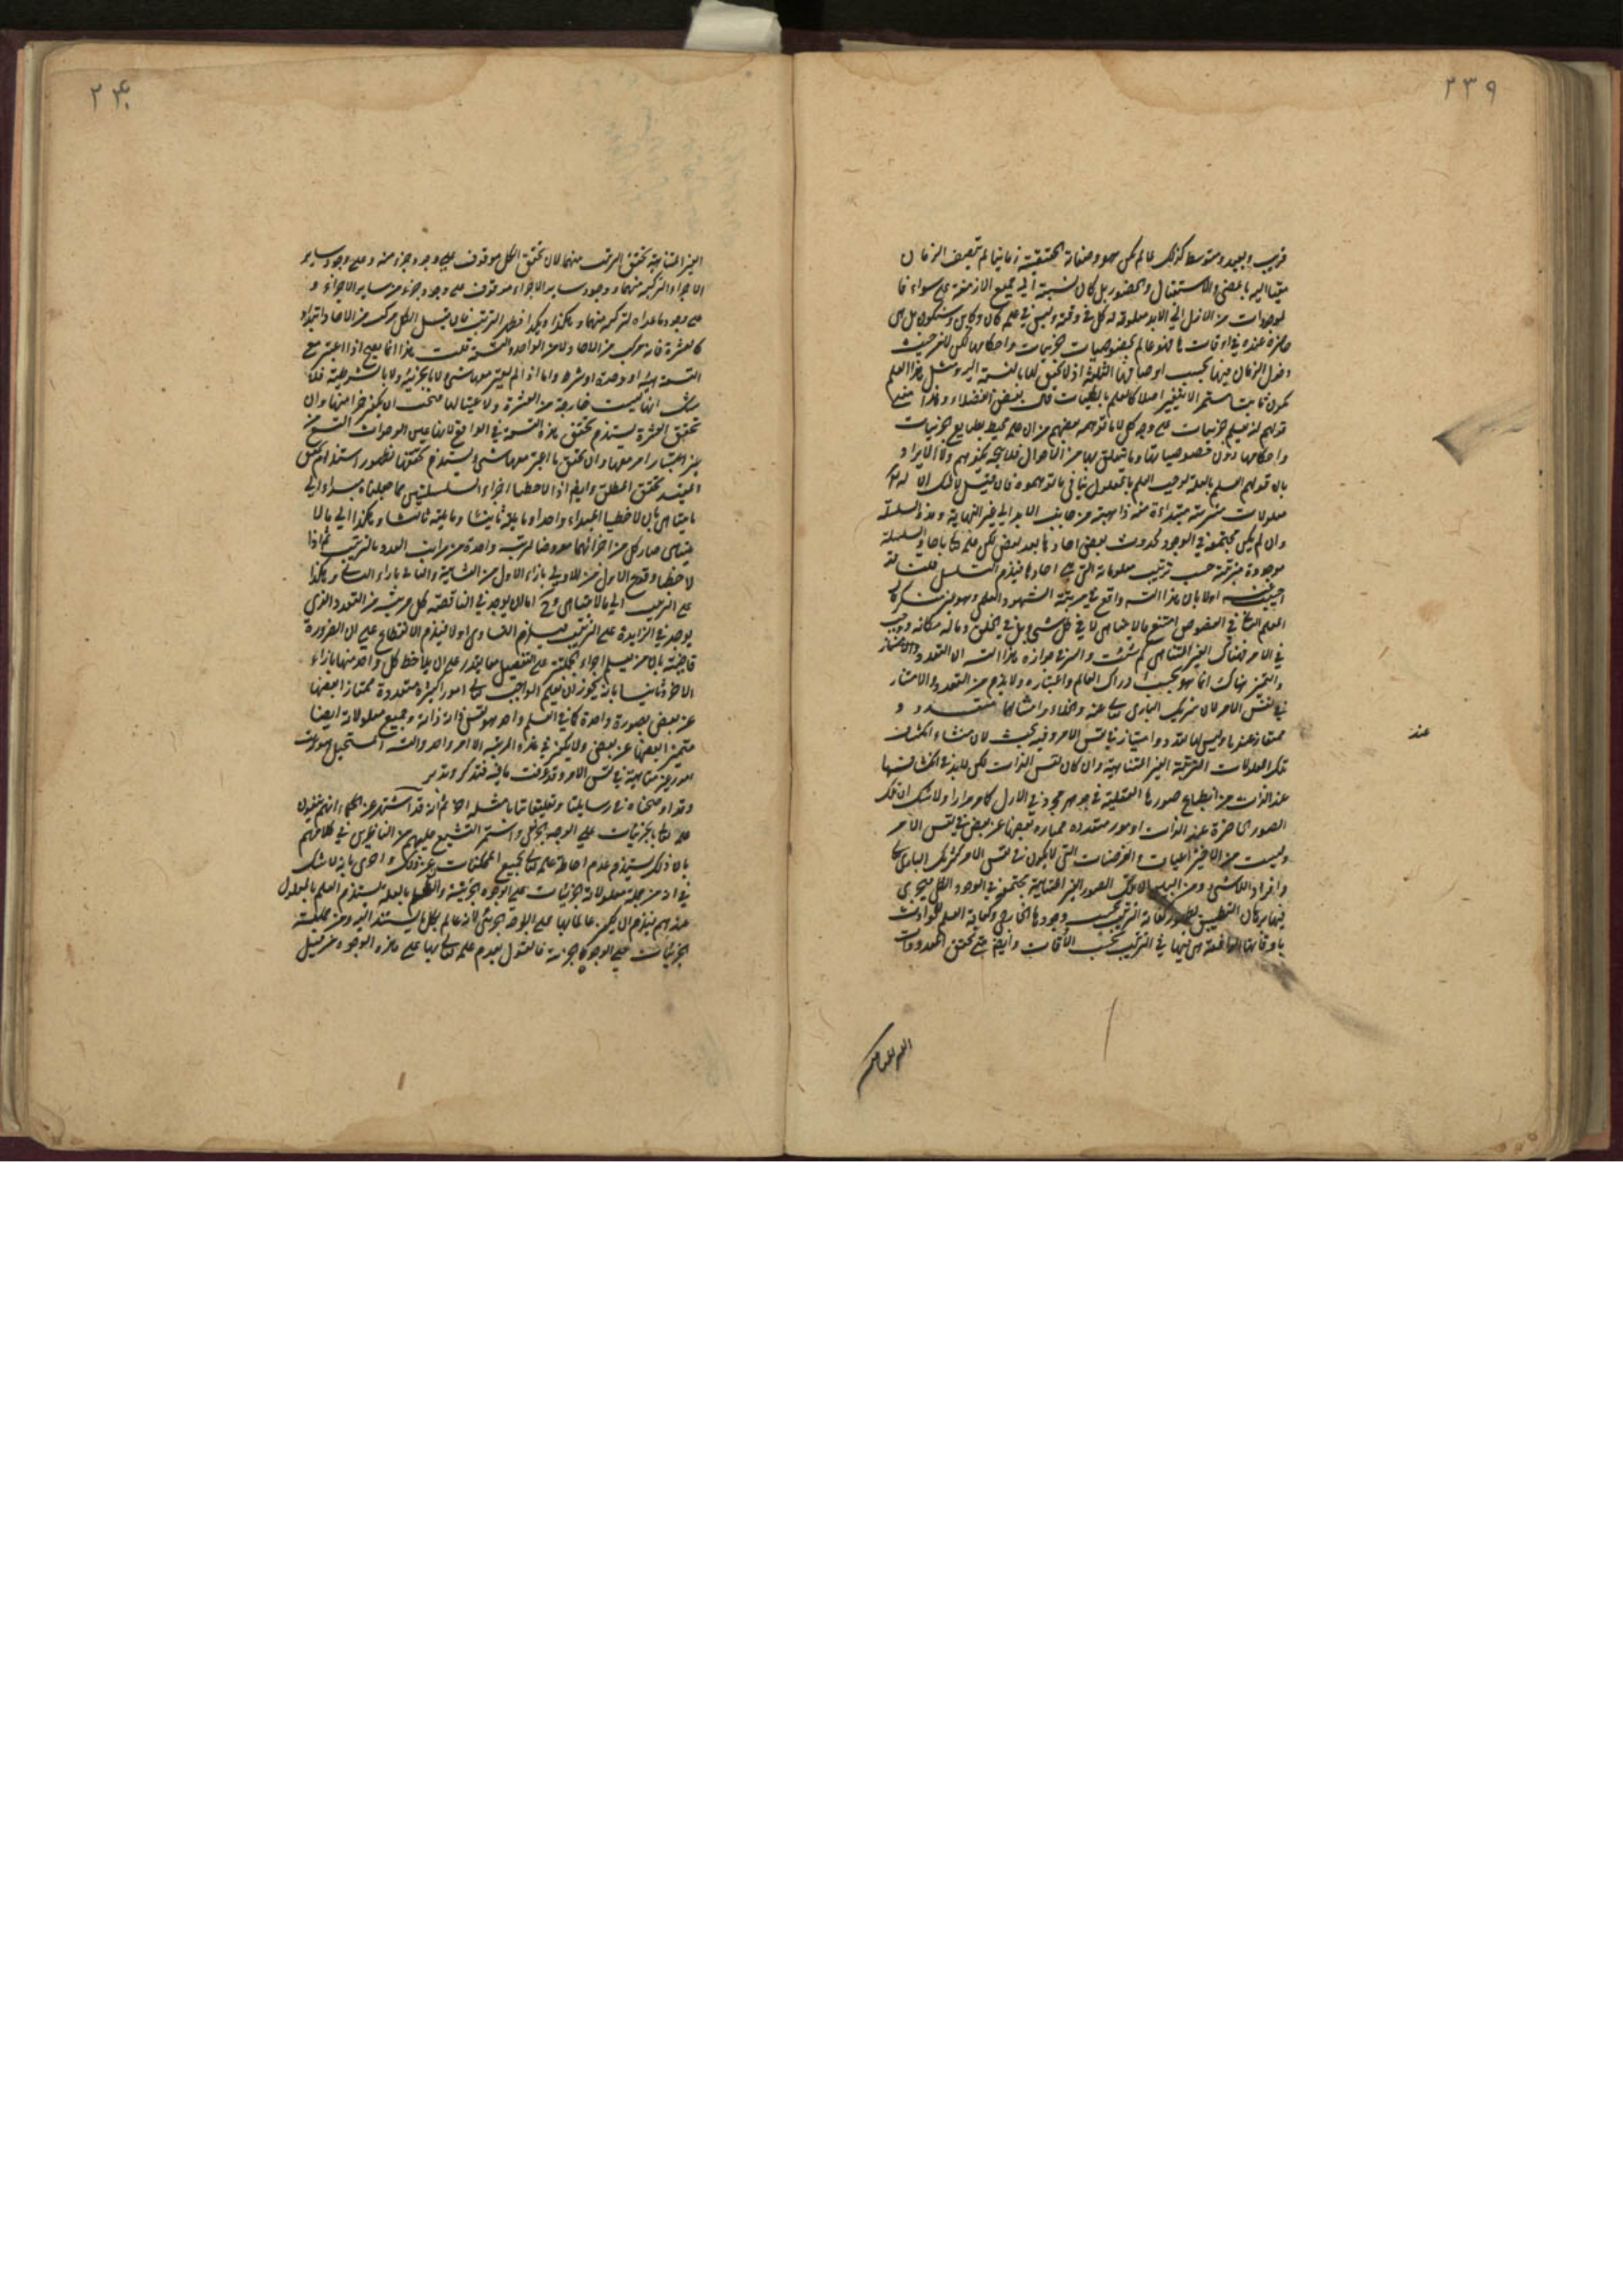 ٢٣٩
قريب وبعيد ومتوسط كذلك لما لم يكن هو وصفاته الحقيقية زمانيا لم يتصف الزمان
مقيسا اليه بالمضي والاستقبال والحضور بل كان نسبته الى جميع الازمنة على سواء فا
لموجودات من الازل الى الابد معلومة له كل في وقته وليس في علمه كان وكائن وسيكون بل هي
حاضرة عنده في اوقاتها فهو عالم بخصوصيات الجزئيات واحكامها لكن لا من حيث
دخول الزمان فيها بحسب اوصافها الثلثة اذ لا تحقق لها بالنسبة اليه ومثل هذا العلم
يكون ثابتا مستمرا لا يتغير اصلا كالعلم بالكليات قال بعض الفضلاء وهذا معنى
قولهم انه يعلم الجزئيات على وجه كلي لا ما توهمه بعضهم من ان علمه محيط بطبايع الجزئيات
واحكامها دون خصوصياتها وما يتعلق بها من الاحوال فلا يتجه نحوهم الايراد
بان قولهم العلم بالعلة يوجب العلم بالمعلول ينافي ما توهموه فان قيل لا شك ان له تعالى
معلومات مترتبة مبتداءة منه ذاهبة من جانب الابد الى غير النهاية وهذه السلسلة
وان لم يكن مجتمعة في الوجود لحدوث بعض احادها بعد بعض لكن علمه تعالى باحاد السلسلة
موجودة مترتبة حسب ترتيب معلوماته التي هي احادها فيلزم التسلسل قلت لقد
اجيب عنه اولا بان هذا التس واقع في مرتبة الشهود العلمي وهو غير منكر قال
المعلم الثاني في الفصوص امتنع ما لا يتناهى لا في كل شيء بل في الخلق وماله مكانه ووجب
في الامر فهناك الغير المتناهى كم شئت والسر في جوازه هذا التس ان التعدد والامتياز
والتميز هناك انما هو بحسب ادراك العالم واعتباره ولا يلزم من التعدد والامتياز
في نفس الامر لان شريك الباري تعالى عنه والخلاء وامثالهما متعدد و
ممتاز عندنا وليس لها تعدد وامتياز في نفس الامر وفيه بحث لان منشاء انكشاف
تلك المعلومات المترتبة الغير المتناهية وان كان نفس الذات لكن لابد في انكشافها
عند الذات من انطباع صورها العقلية في جوهر مجرد في الازل كما مر مرارا ولا شك ان تلك
الصور الحاضرة عند الذات امور متعدده ممتازه بعضها عن بعض في نفس الامر
وليست من الاختراعيات والفرضيات التي لا يكون في نفس الامر كشريك الباري تعالى
وافراد اللاشيء ومن البين ان تلك الصور الغير المتناهية مجتمعة في الوجود الظلي فيجري
فيها برهان التطبيق لكفاية الترتيب بحسب وجودها الخارجي وكفاية العلم للحوادث
باوقاتها الواقعة هي فيها في الترتيب بحسب الاوقات وايضا متى تحقق المعدودات
عند
٢٤٠
الغير المتناهية تحقق المرتب منهما لان تحقق الكل موقوف على وجود جزء منه وعلى وجود ساير
الاجزاء التركيبه منهما ووجود ساير الاجزاء موقوف على وجود جزء من ساير الاجزاء و
على وجود ما عداه لتركبه منهما وهكذا وهكذا فظهر الترتيب فان قيل الكل مركب من الاحاد ابتداء
كالعشرة فانه مركب من الاحاد ولا من الواحد والتسعة قلت هذا انما يصح اذا اعتبر مع
التسعة هيئة او وحدة او شرط واما اذا لم يعتبر معها شيء لا بالجزئية ولا بالشرطية فلا
شك انها ليست خارجة من العشرة ولا عينا لها فيجب ان يكون جزءا منها وان
تحقق العشرة يستلزم تحقق هذه التسعة في الواقع لانها عين الوحدات التسع من
غير اعتبار امر معها وان تحقق ما اعتبر معها شيء يستلزم تحققها لظهور استلزام تحقق
المقيد تحقق المطلق وايضا اذا لاحظنا اجزاء السلسلتين مما جعلناه مبداء الى
ما يتناهى بان لاحظنا المبداء واحدا وما يليه ثانيا وما يليه ثالثا وهكذا الى ما لا
يتناهى صار كل من اجزائهما معروضا لمرتبه واحدة من مراتب العدد بالترتيب فاذا
لاحظنا وقوع الاول من الاولى بازاء الاول من الثانية والثاني بازاء الثاني وهكذا
على الترتيب الى ما لا يتناهى وح اما ان يوجد في الناقصة لكل مرتبة من التعدد الذي
يوجد في الزايدة على الترتيب فيلزم التساوي او لا فيلزم الانقطاع على ان الضرورة
قاضية بان من يعلم اجزاء الجملتين على التفصيل معا يقدر على ان يلاحظ كل واحد منها بازاء
الاخر وثانيا بانه يجوز ان يعلم الواجب تعالى امورا كثيرة متعددة ممتازا بعضها
عن بعض بصورة واحدة كما في العلم واحد هو نفس ذاته ذاته وجميع معلولاته ايضا
متميزا بعضها عن بعض ولا يكون في هذه المرتبه الا امر واحد والتس المستحيل هو ترتب
امور غير متناهية في نفس الامر وقد عرفت ما فيه فتذكر وتدبر
وقد اوضحناه في رسايلنا وتعليقاتنا مشله اخ ثم انه قد اشتهر عن الحكماء انهم ينفون
علمه تعالى بالجزئيات على الوجه الجزئي واشتهر التشنيع عليهم من الناظرين في كلامهم
بان ذلك يستلزم عدم احاطة علمه تعالى بجميع الممكنات عن ذلك واحرى بانه لا شك
في ان من جملة معلولاته الجزئيات على الوجوه الجزئية والعلم بالعلة يستلزم العلم بالمعلول
عندهم فيلزم ان يكون عالما بها على الوجه الجزئي لانه عالم بكل ما يستند اليه ومن جملته
الجزئيات على الوجوه الجزئية فالقول بعدم علمه تعالى بها على هذه الوجوه من قبيل